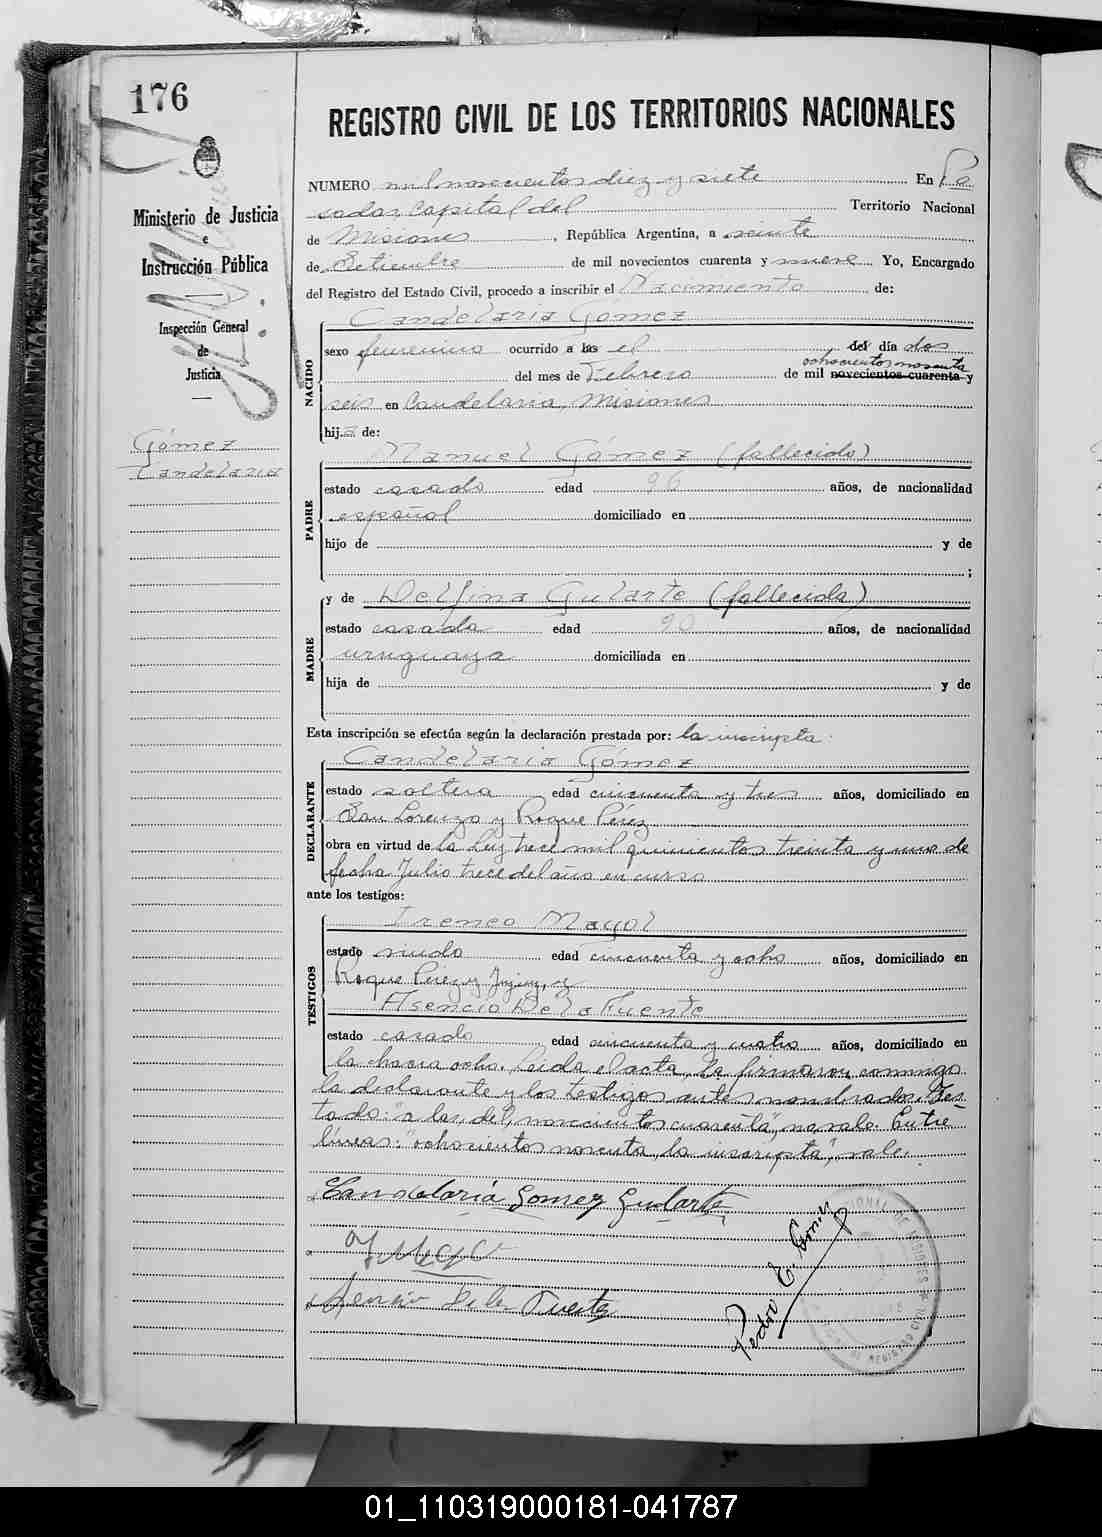 176
REGISTRO CIVIL DE LOS TERRITORIOS NACIONALES
Ministerio de Justicia
e
Instrucción Pública
Inspección General
de
Justicia
Gómez
Candelaria
NUMERO mil novecientos diez y siete En Po
sadas, Capital del Territorio Nacional
de Misiones, República Argentina, a veinte
de Setiembre de mil novecientos cuarenta y nueve Yo, Encargado
del Registro del Estado Civil, procedo a inscribir el Nacimiento de:
NACIDO
Candelaria Gómez
sexo femenino ocurrido a las el del día dos
ochocientos noventa
del mes de Febrero de mil novecientos cuarenta y
seis en Candelaria, Misiones
hija de:
PADRE
Manuel Gómez (fallecido)
estado casado edad 96 años, de nacionalidad
español domiciliado en
hijo de y de
;
MADRE
y de Delfina Gularte (fallecida)
estado casada edad 90 años, de nacionalidad
uruguaya domiciliada en
hija de y de
Esta inscripción se efectúa según la declaración prestada por: la inscripta
DECLARANTE
Candelaria Gómez
estado soltera edad cincuenta y tres años, domiciliado en
San Lorenzo y Roque Pérez
obra en virtud de la Ley trece mil quinientos treinta y uno de
fecha Julio trece del año en curso
ante los testigos:
TESTIGOS
Ireneo Mayol
estado viudo edad cincuenta y ocho años, domiciliado en
Roque Pérez y Jujuy, y
Asencio De la Fuente
estado casado edad cincuenta y cuatro años, domiciliado en
la chacra ocho. Leida el acta, la firmaron conmigo
la declarante y los testigos antes nombrados. Tes-
tado: "a las, del, novecientos cuarenta", no vale. Entre
líneas: "ochocientos noventa, la inscripta", vale.
Candelaria Gomez Gularte
Asencio De la Fuente
Pedro E.
01_110319000181-041787